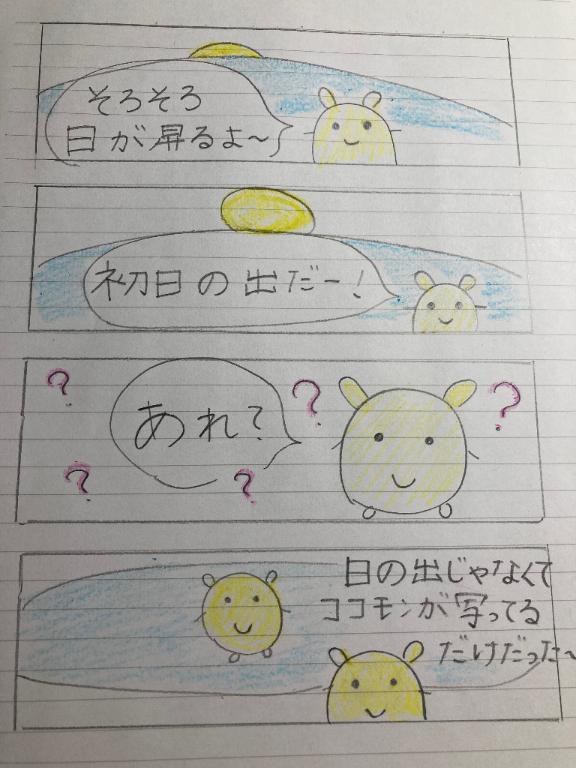 そろそろ
日が昇るよ〜
初日の出だー!
?
あれ?
?
?
?
?
日の出じゃなくて
ココモンが写ってる
だけだった〜